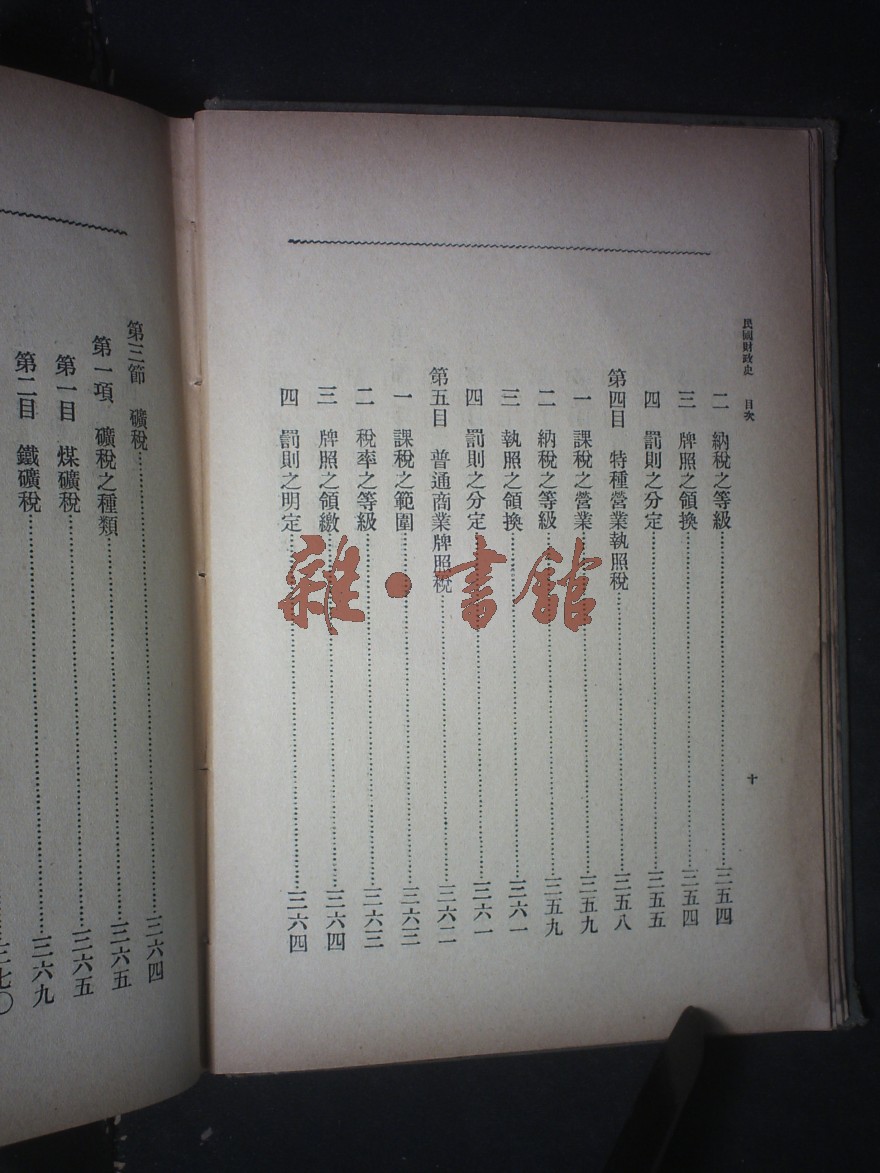 民國財政史 目次
十
二 納稅之等級……三五四
三 牌照之領換……三五四
四 罰則之分定……三五五
第四目 特種營業執照稅……三五八
一 課稅之營業……三五九
二 納稅之等級……三五九
三 執照之領換……三六一
四 罰則之分定……三六一
第五目 普通商業牌照稅……三六二
一 課稅之範圍……三六三
二 稅率之等級……三六三
三 牌照之領繳……三六四
四 罰則之明定……三六四
第三節 礦稅……三六四
第一項 礦稅之種類……三六五
第一目 煤礦稅……三六五
第二目 鐵礦稅……三六九
三七〇
雜·書館